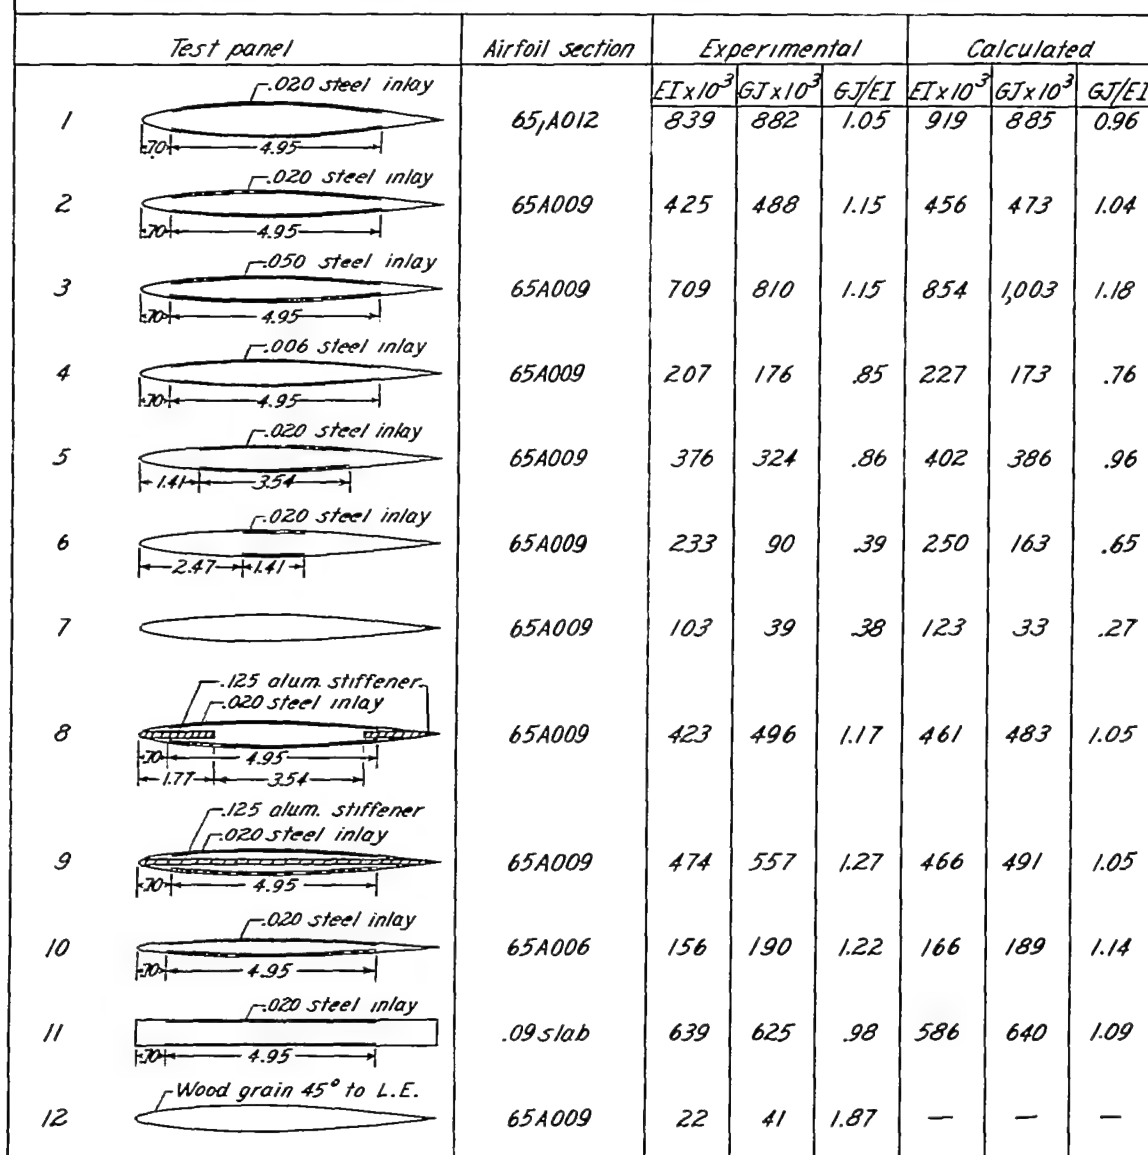 Test panel Airfoil section Experimental Calculated
EI x 10³ GJ x 10³ GJ/EI EI x 10³ GJ x 10³ GJ/EI
.020 steel inlay
1 65,A012 839 882 1.05 919 885 0.96
.70 4.95
.020 steel inlay
2 65A009 425 488 1.15 456 473 1.04
.70 4.95
.050 steel inlay
3 65A009 709 810 1.15 854 1,003 1.18
.70 4.95
.006 steel inlay
4 65A009 207 176 .85 227 173 .76
.70 4.95
.020 steel inlay
5 65A009 376 324 .86 402 386 .96
1.41 3.54
.020 steel inlay
6 65A009 233 90 .39 250 163 .65
2.47 1.41
7 65A009 103 39 .38 123 33 .27
.125 alum. stiffener
.020 steel inlay
8 65A009 423 496 1.17 461 483 1.05
.70 4.95
1.77 3.54
.125 alum. stiffener
.020 steel inlay
9 65A009 474 557 1.27 466 491 1.05
.70 4.95
.020 steel inlay
10 65A006 156 190 1.22 166 189 1.14
.70 4.95
.020 steel inlay
11 .09 slab 639 625 .98 586 640 1.09
.70 4.95
Wood grain 45° to L.E.
12 65A009 22 41 1.87 — — —